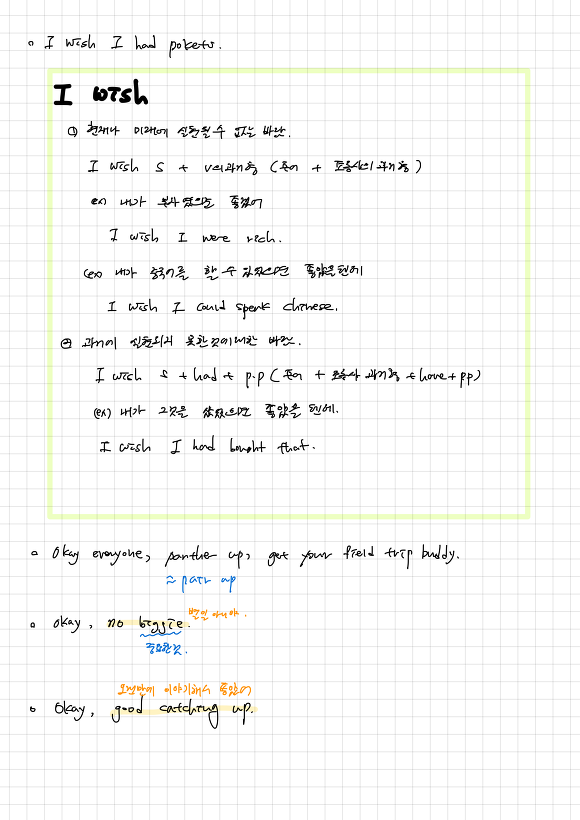 I wish I had pokets.
I wish
① 현재나 미래에 실현될 수 없는 바람.
I wish S + V의 과거형 (주어 + 조동사의 과거형)
ex) 내가 부자였으면 좋겠어
I wish I were rich.
(ex) 내가 중국어를 할 수 있었으면 좋았을텐데
I wish I could speak chinese.
② 과거에 실현되지 못한 것에 대한 바람.
I wish S + had + p.p (주어 + 조동사 과거형 + have + pp)
(ex) 내가 그것을 샀었으면 좋았을 텐데.
I wish I had bought that.
Okay everyone, panther up, get your field trip buddy.
≈ pair up
okay, no biggie. 별일 아니야.
중요한 것.
오랜만에 이야기해서 좋았어
Okay, good catching up.